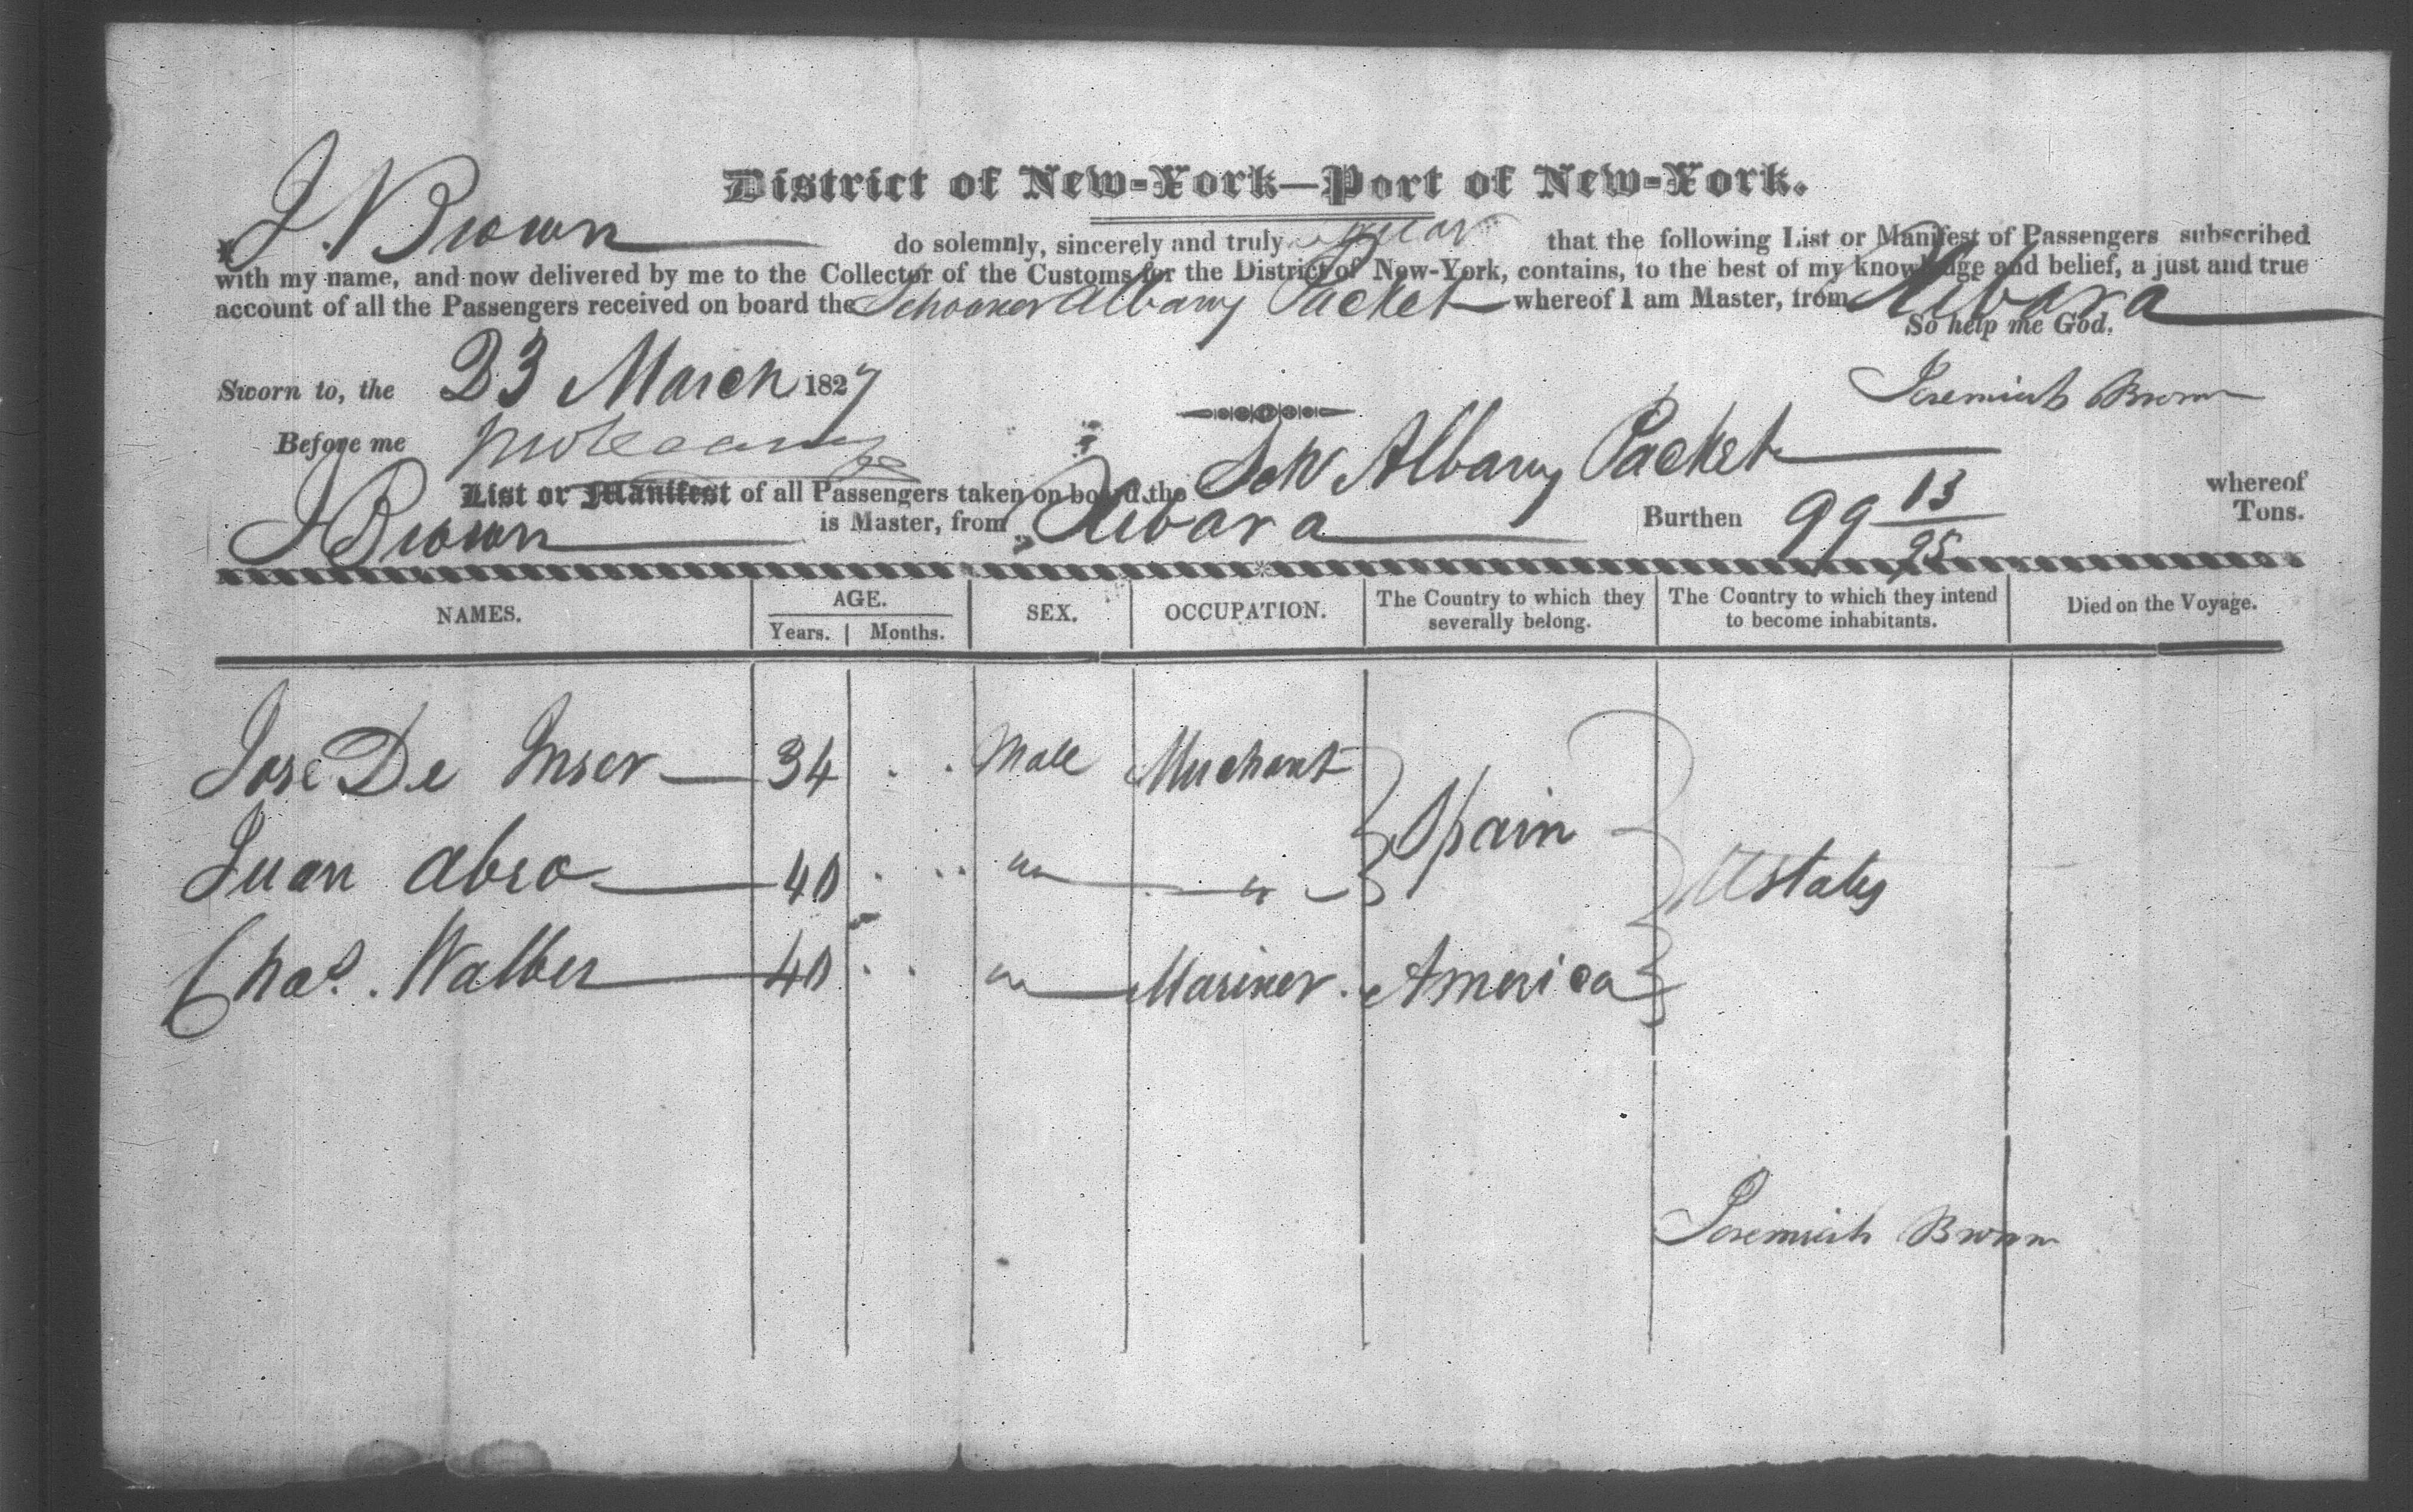 District of New-York—Port of New-York.
I, J. Brown do solemnly, sincerely and truly swear that the following List or Manifest of Passengers subscribed
with my name, and now delivered by me to the Collector of the Customs for the District of New-York, contains, to the best of my knowledge and belief, a just and true
account of all the Passengers received on board the Schooner Albany Packet whereof I am Master, from Xibara
So help me God.
Sworn to, the 23 March 1827
Jeremiah Brown
Before me
List or Manifest of all Passengers taken on board the Schr Albany Packet whereof
J Brown is Master, from Xibara Burthen 99 13/95 Tons.
NAMES. AGE. Years. Months. SEX. OCCUPATION. The Country to which they severally belong. The Country to which they intend to become inhabitants. Died on the Voyage.
Jose De 34 Male Merchant
Spain
Juan Abro 40 " "
U States
Chas. Walber 40 " Mariner America
Jeremiah Brown